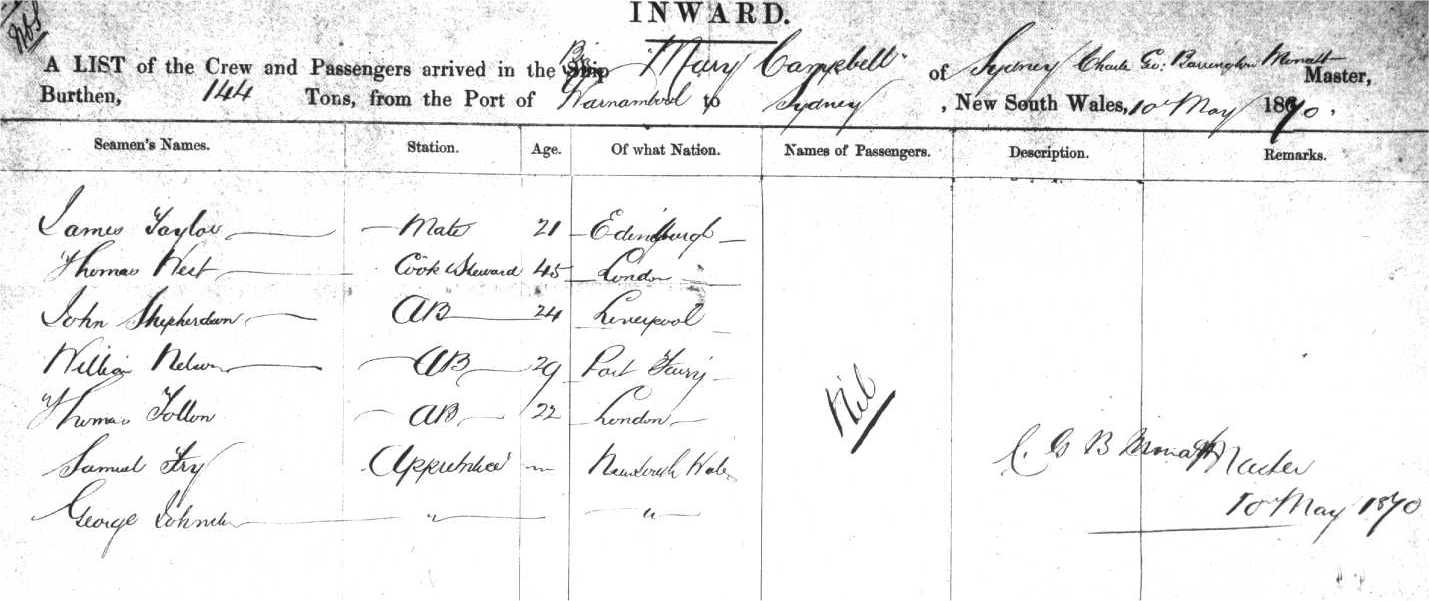 INWARD.
A LIST of the Crew and Passengers arrived in the Ship Mary Campbell of Sydney Charle Go: Barrington Master,
Burthen, 144 Tons, from the Port of Warnambool to Sydney, New South Wales, 10 May 1870.
Seamen's Names. Station. Age. Of what Nation. Names of Passengers. Description. Remarks.
James Taylor Mate 21 Edinburgh
Thomas West Cook & Steward 45 London
John Shepherdson AB 24 Liverpool
William Nelson AB 29 Port Fairy
Thomas AB 22 London
Samuel Fry Apprentice New South Wales
George " "
Nil
C. G B Master
10 May 1870